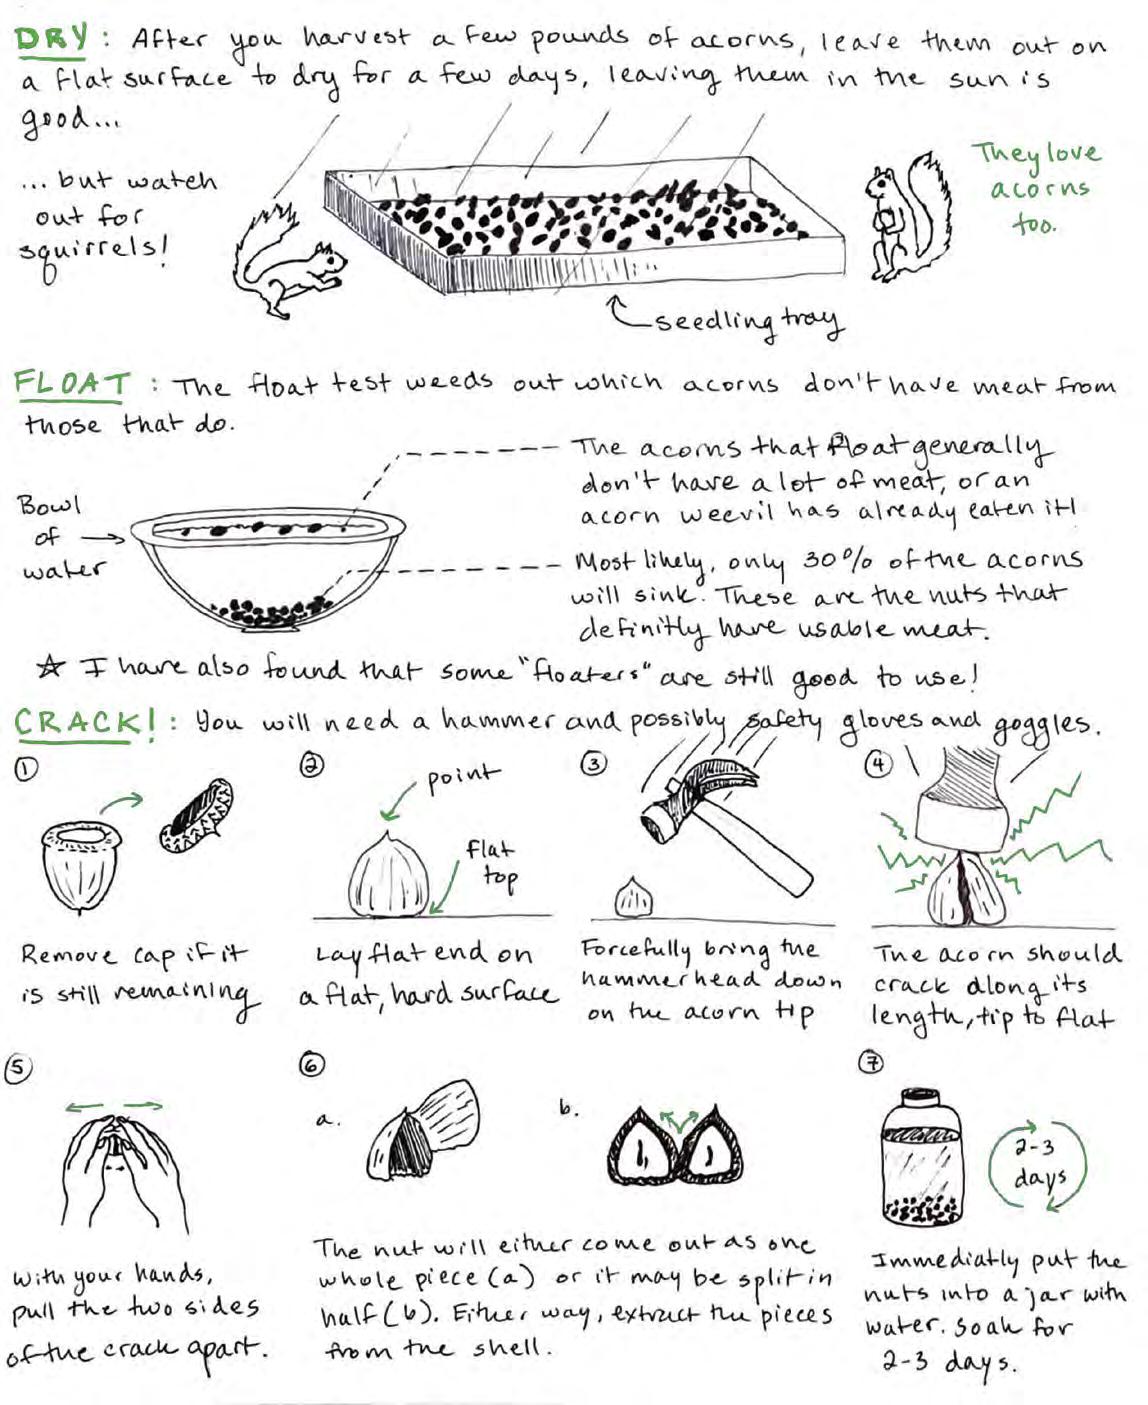 DRY: After you harvest a few pounds of acorns, leave them out on
a flat surface to dry for a few days, leaving them in the sun is
good...
... but watch
out for
squirrels!
They love
acorns
too.
seedling tray
FLOAT: The float test weeds out which acorns don't have meat from
those that do.
Bowl
of
water
The acorns that float generally
don't have a lot of meat, or an
acorn weevil has already eaten it!
Most likely, only 30% of the acorns
will sink. These are the nuts that
definitly have usable meat.
☆ I have also found that some "floaters" are still good to use!
CRACK!: You will need a hammer and possibly safety gloves and goggles.
①
Remove cap if it
is still remaining
②
point
flat
top
Lay flat end on
a flat, hard surface
③
Forcefully bring the
hammerhead down
on the acorn tip
④
The acorn should
crack along its
length, tip to flat
⑤
With your hands,
pull the two sides
of the crack apart.
⑥
a.
b.
The nut will either come out as one
whole piece (a) or it may be split in
half (b). Either way, extract the pieces
from the shell.
⑦
2-3
days
Immediatly put the
nuts into a jar with
water. Soak for
2-3 days.